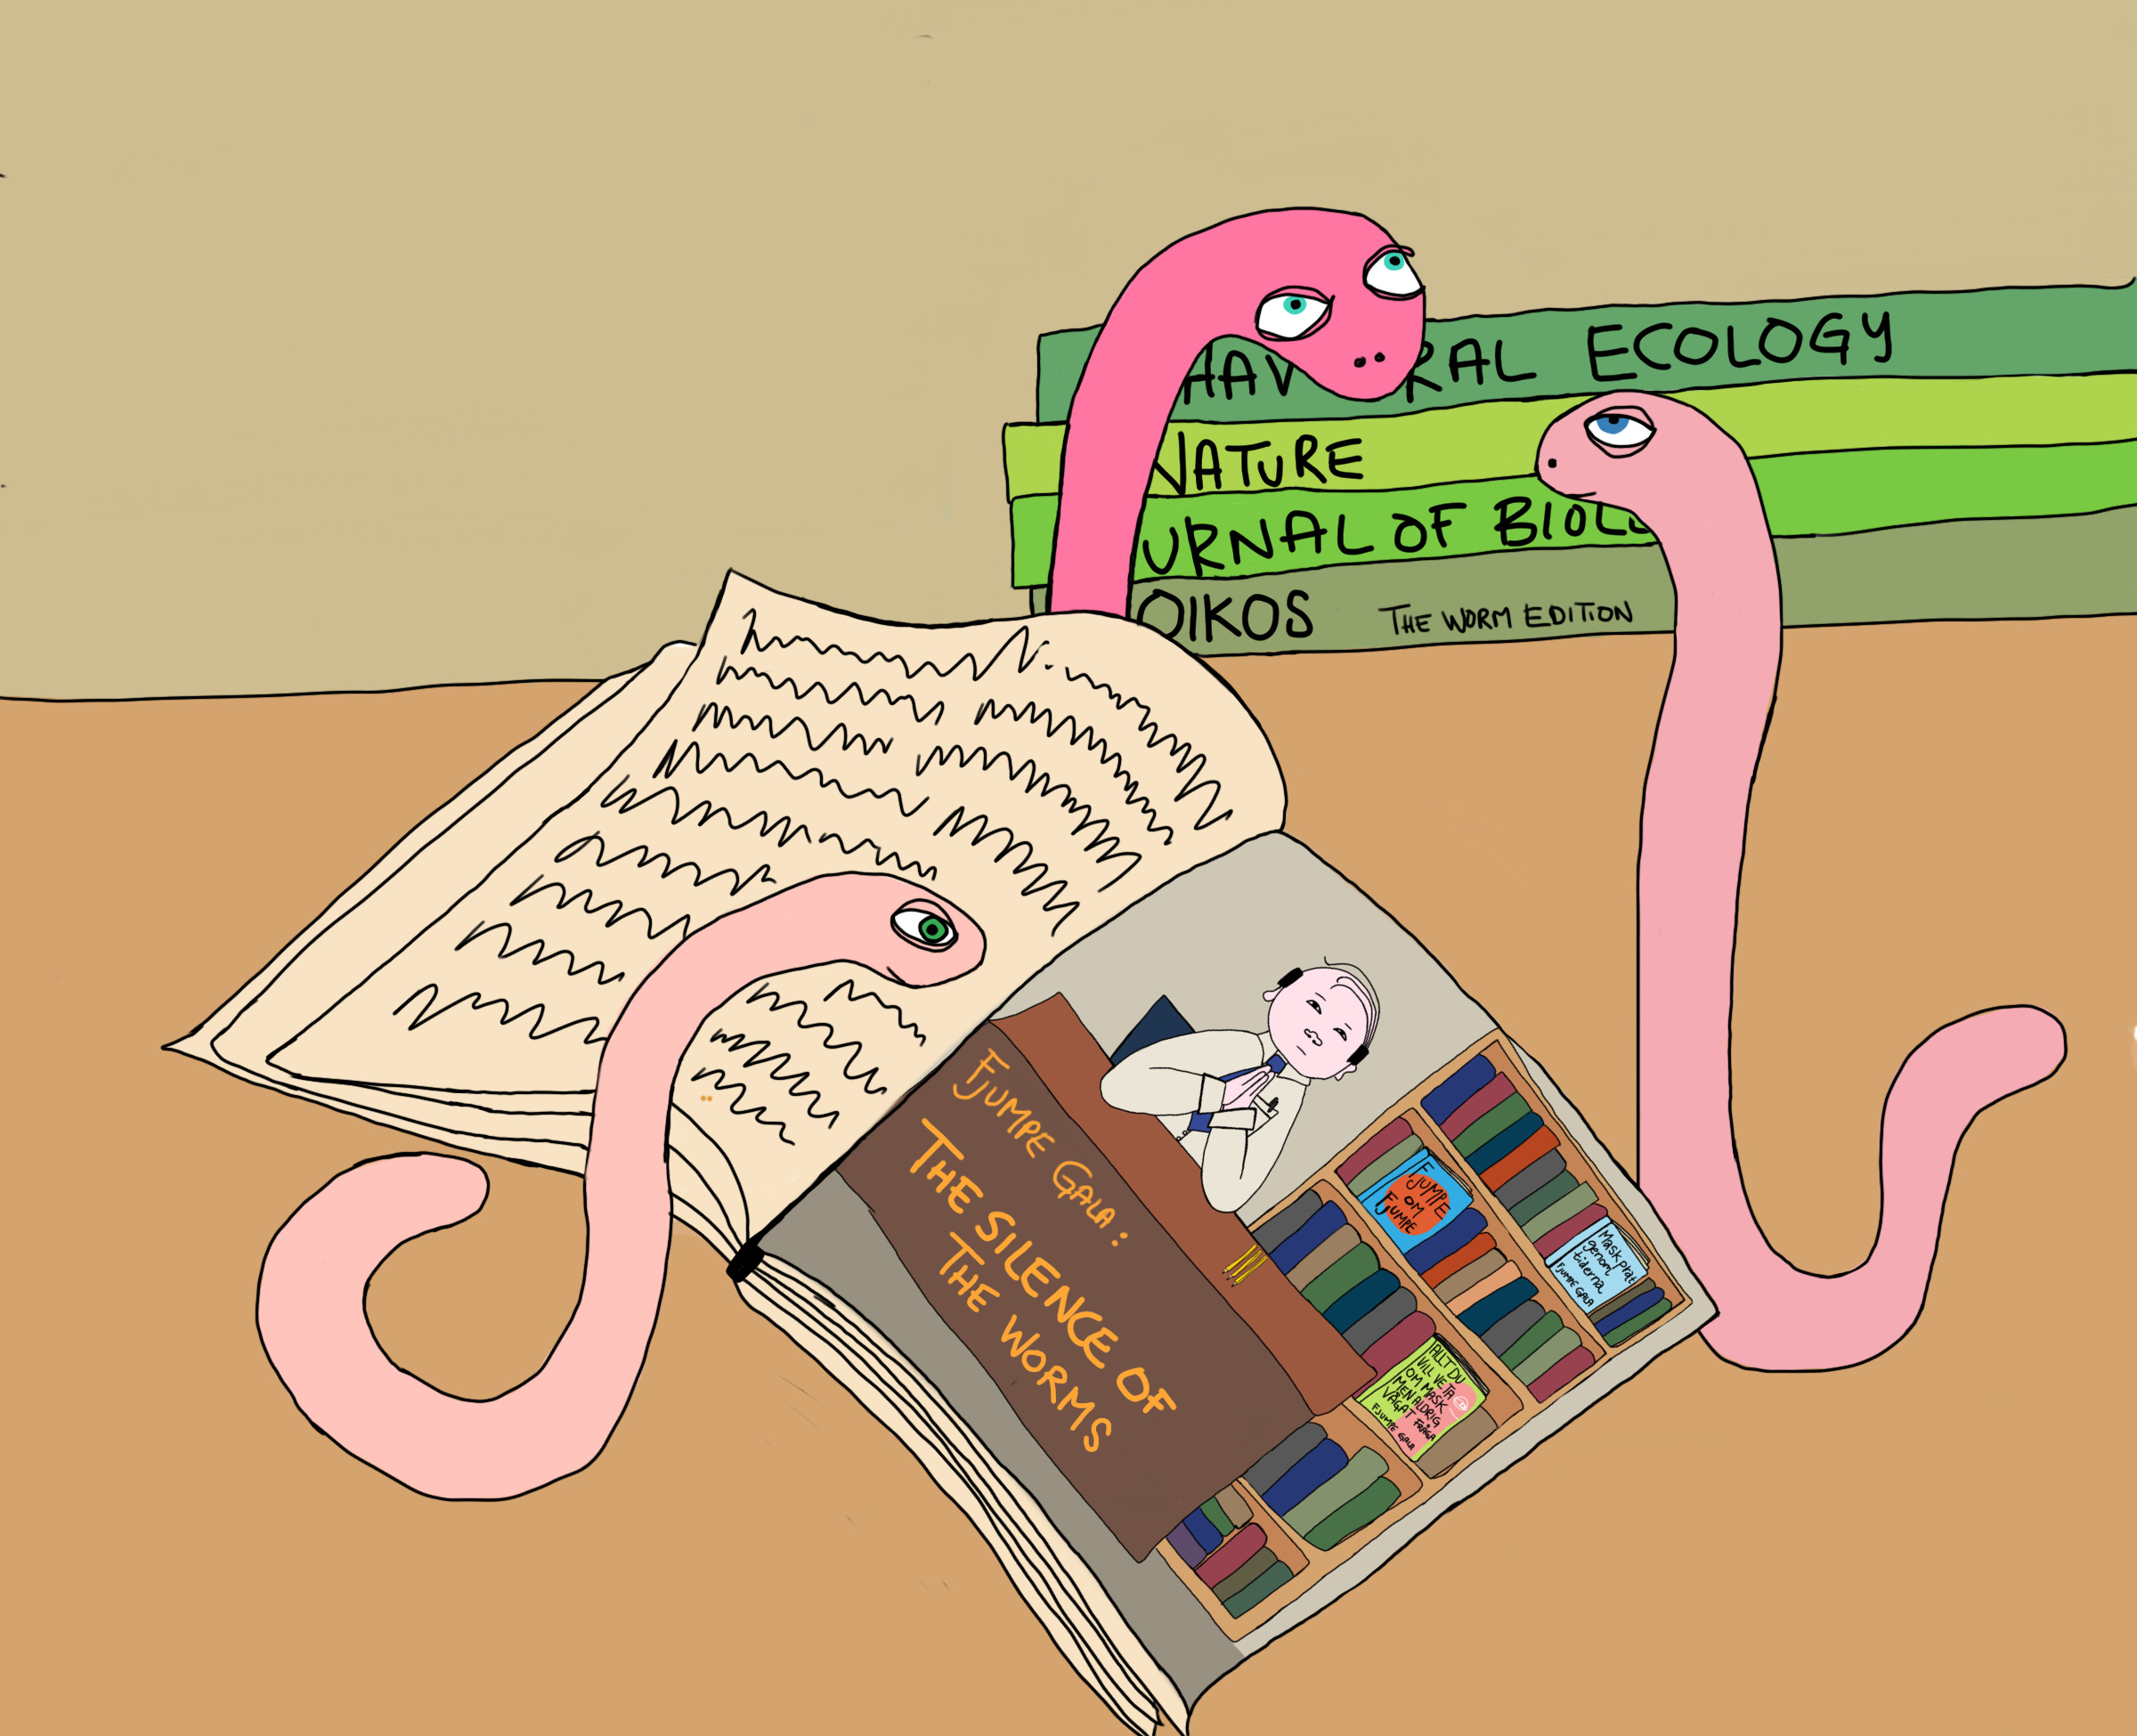 HAV RAL ECOLOGY
NATURE
URNAL OF BIOL
OIKOS THE WORM EDITION
FJUMPE GALA:
THE SILENCE OF
THE WORMS
FJUMPE
OM
FJUMPE
Mask prat
genom
tiderna
FJUMPE GALA
ALLT DU
VILL VETA
OM MASK
MEN ALDRIG
VÅGAT FRÅGA
FJUMPE GALA